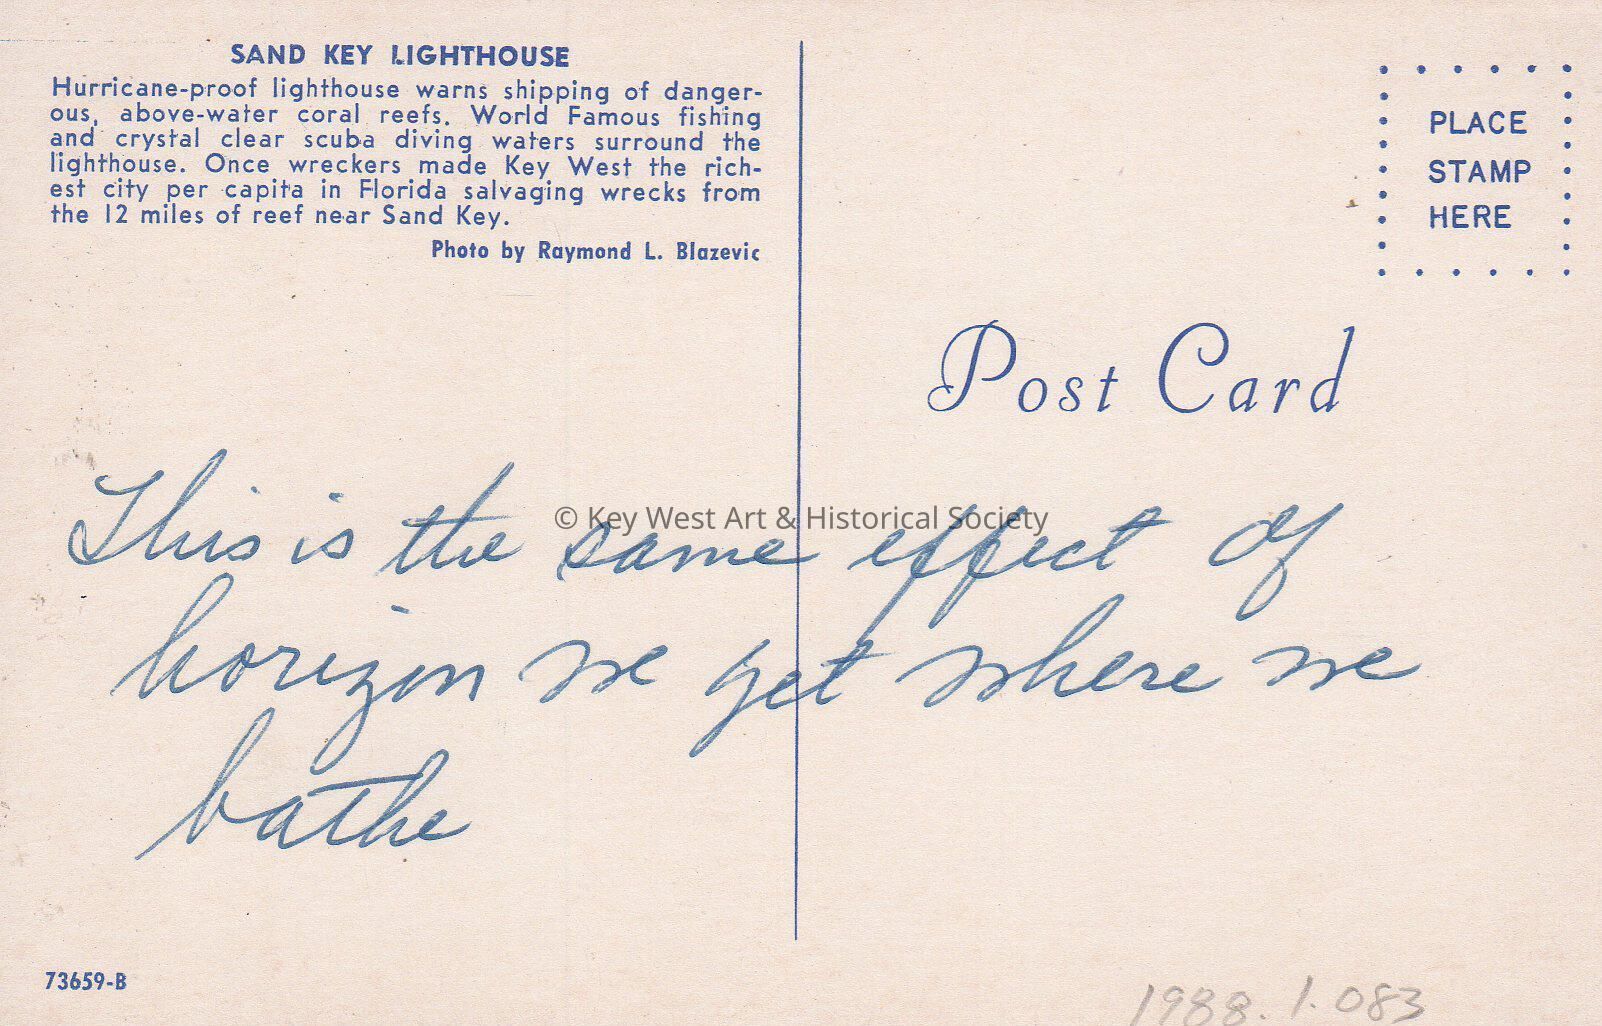 SAND KEY LIGHTHOUSE
Hurricane-proof lighthouse warns shipping of danger-
ous, above-water coral reefs. World Famous fishing
and crystal clear scuba diving waters surround the
lighthouse. Once wreckers made Key West the rich-
est city per capita in Florida salvaging wrecks from
the 12 miles of reef near Sand Key.
Photo by Raymond L. Blazevic
PLACE
STAMP
HERE
Post Card
© Key West Art & Historical Society
This is the same effect of
horizon we get where we
bathe
73659-B
1988.1.083